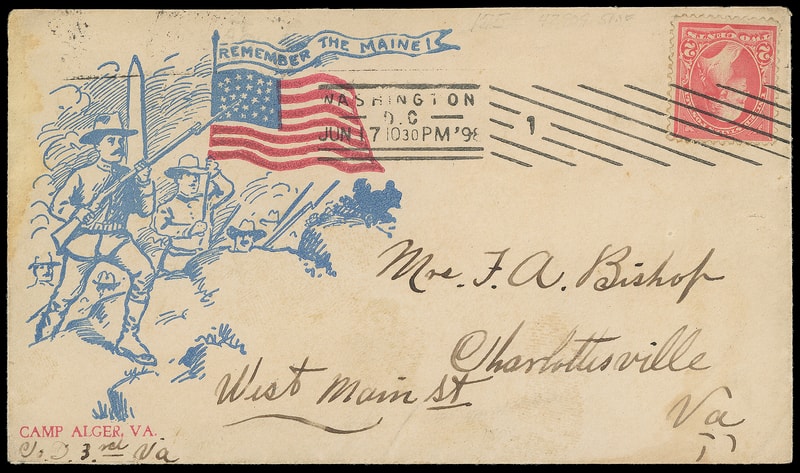 REMEMBER THE MAINE!
WASHINGTON
D.C
JUN 17 1030PM '98
1
2 2
Mre. F. A. Bishop
Charlottesville
West Main St
Va
CAMP ALGER, VA.
3rd Va